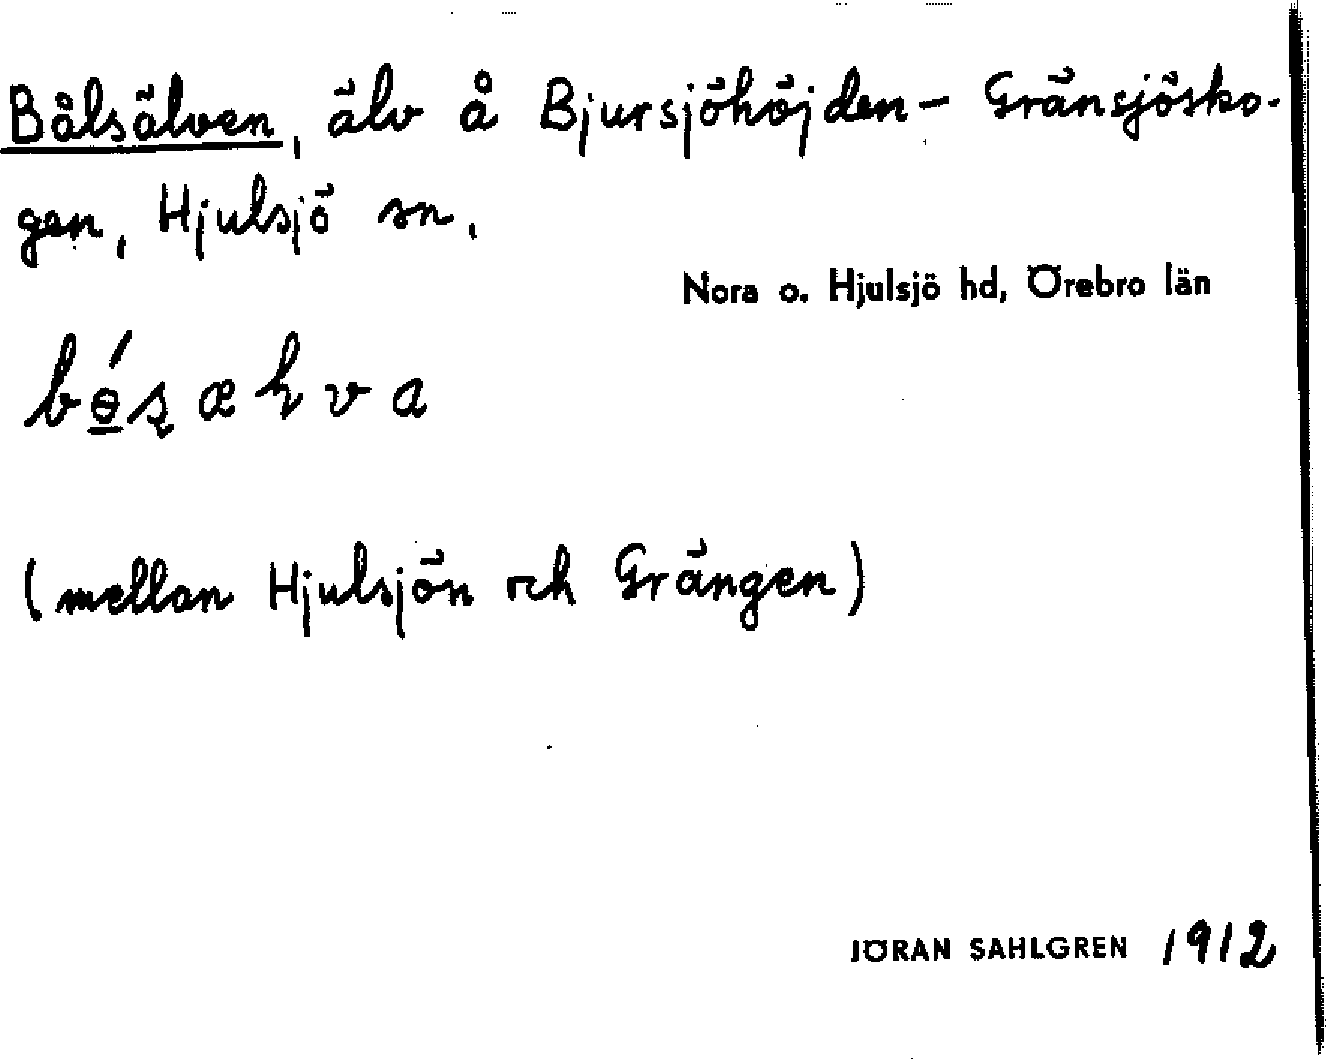 Bålsälven, älv å Bjursjöhöjden – Gränsjösko-
gen, Hjulsjö sn.
Nora o. Hjulsjö hd, Örebro län
(mellan Hjulsjön och Grängen)
JÖRAN SAHLGREN 1912